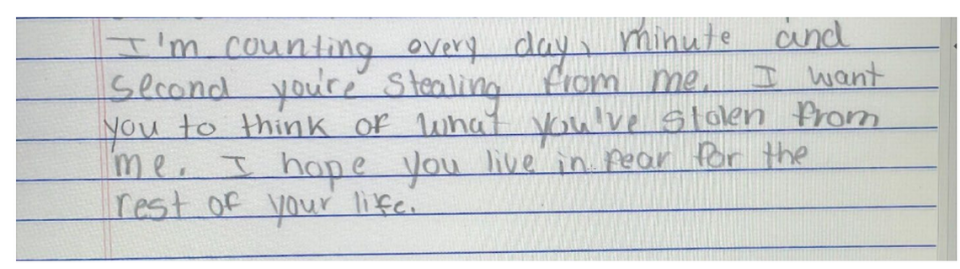 I'm counting every day, minute and
second you're stealing from me. I want
you to think of what you've stolen from
me. I hope you live in fear for the
rest of your life.